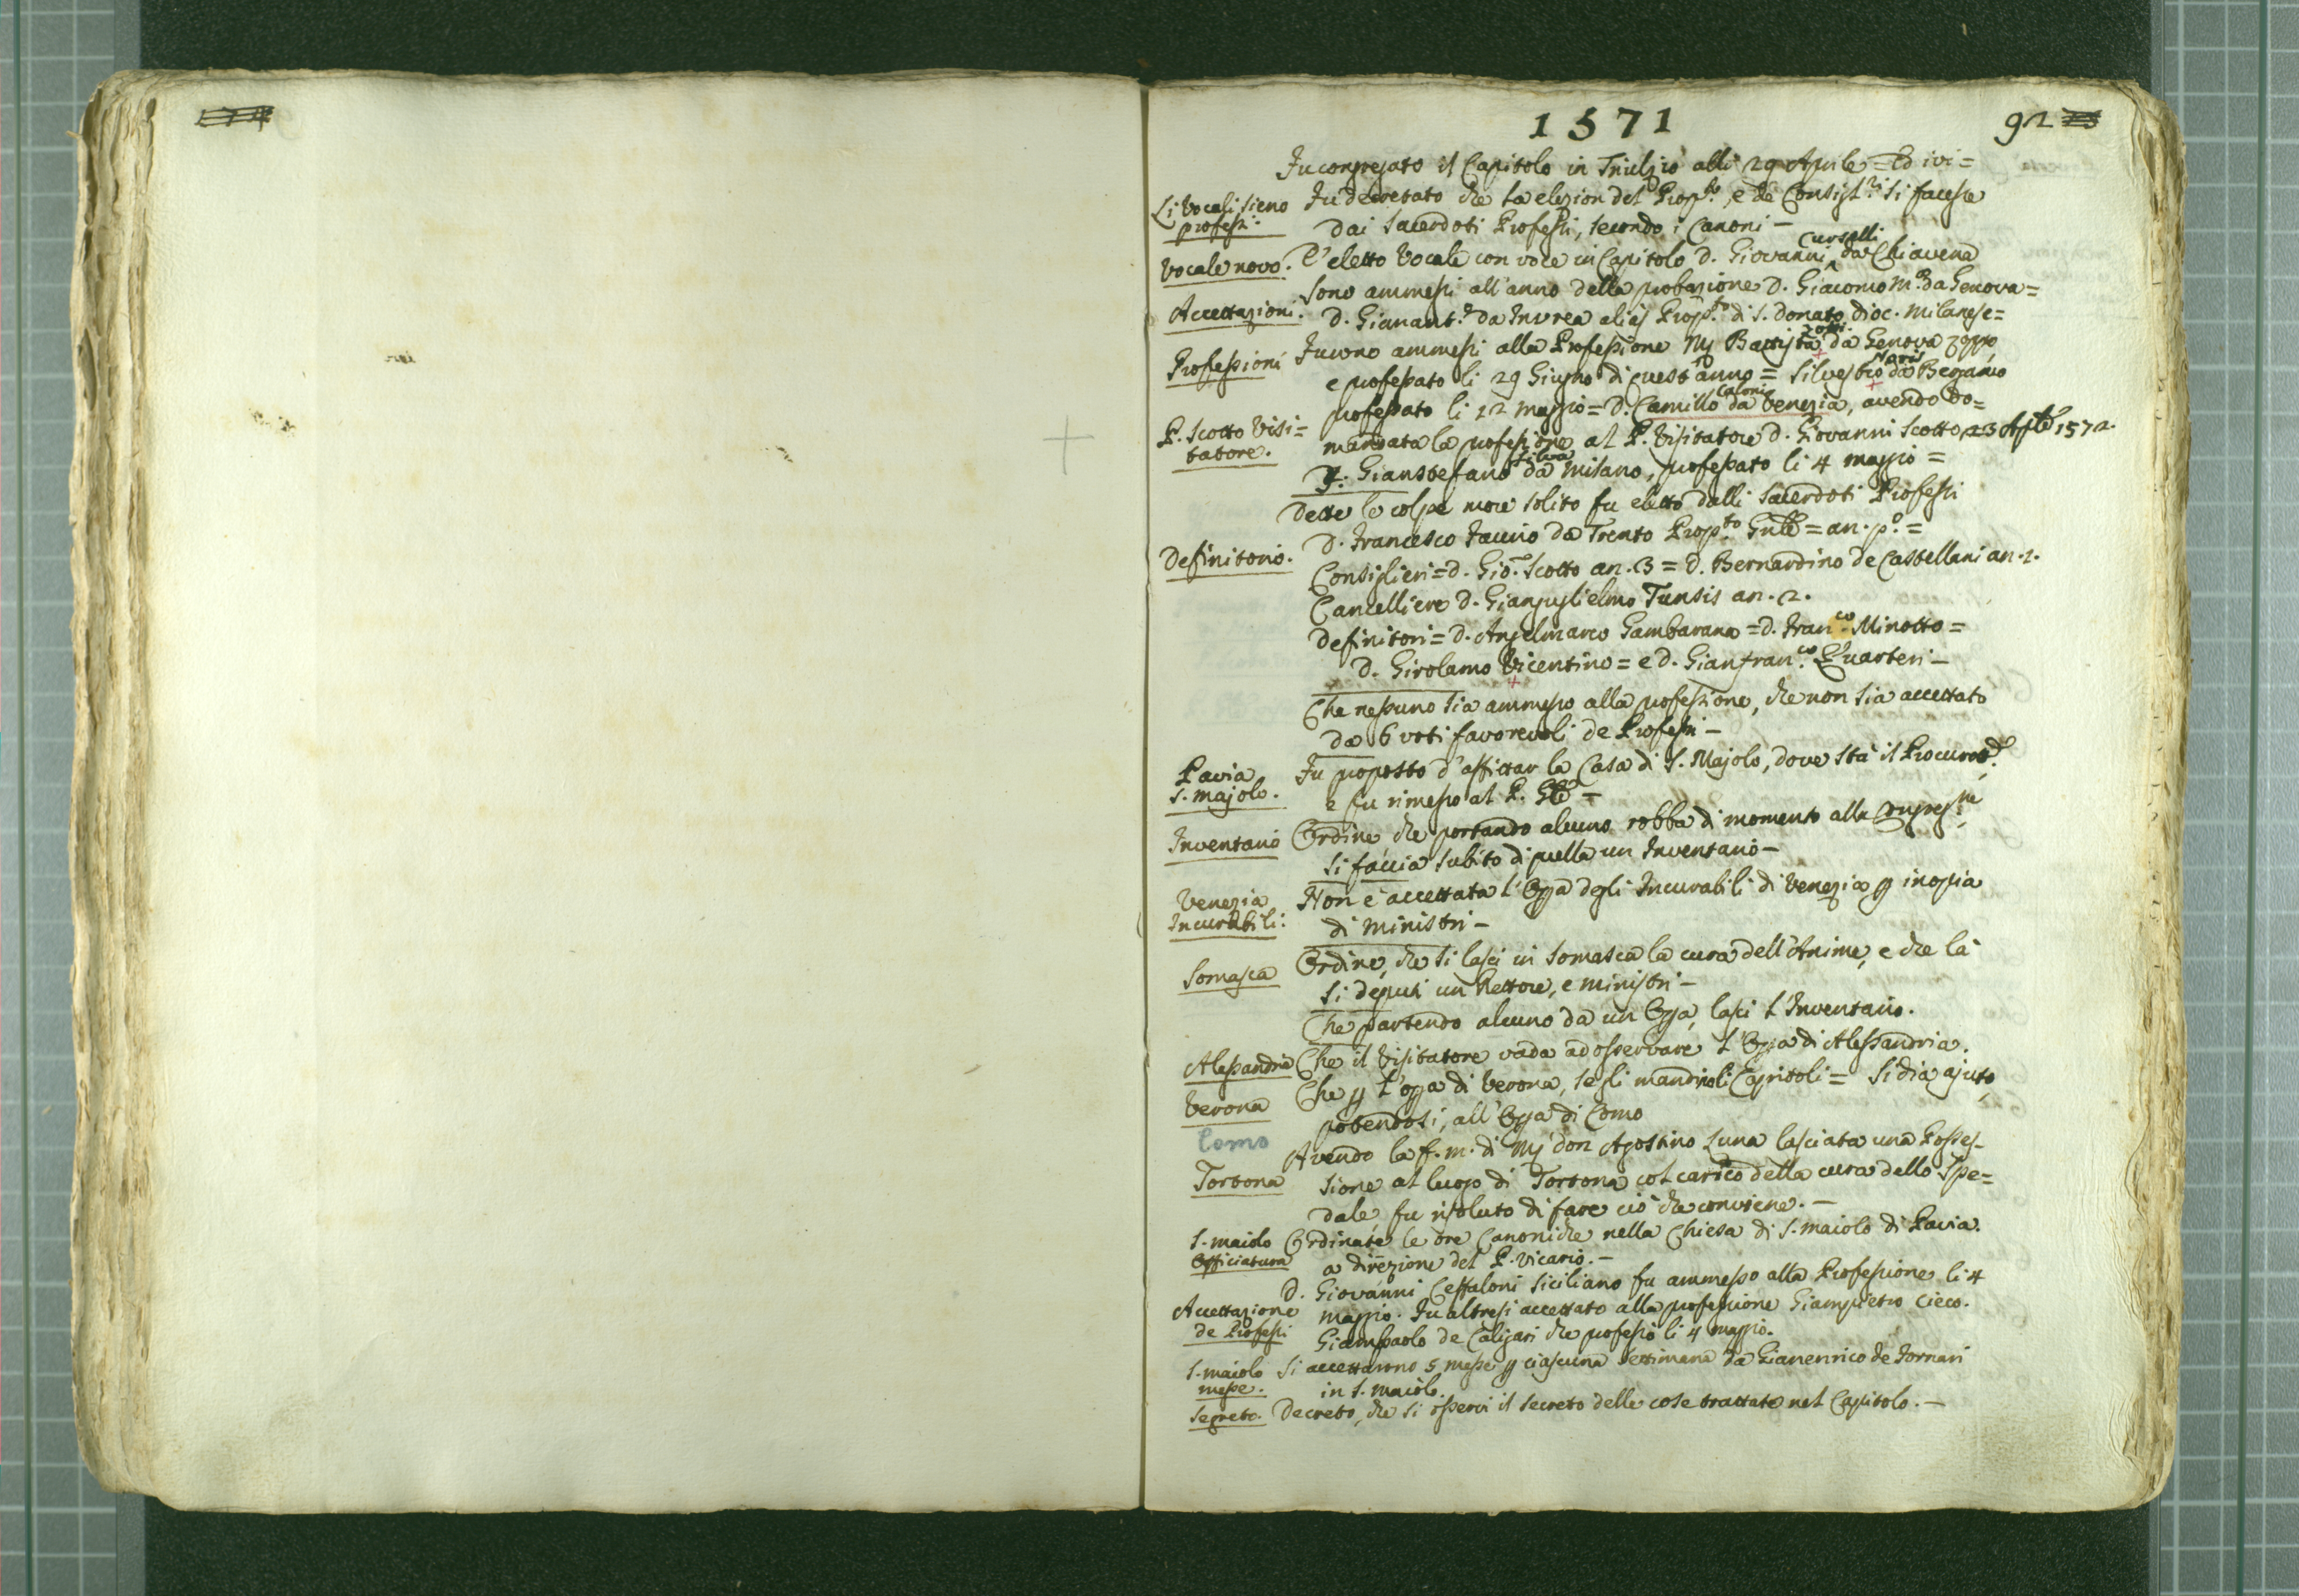 1571
92
Fu congregato il Capitolo in Triulzio alli 29 Aprile = Ed ivi =
Li Vocali sieno professi.
Fu decretato che la elezion del Prop.to, e de Consigl.ri si facesse
dai Sacerdoti Professi, secondo i Canoni -
Vocale novo.
E' eletto Vocale con voce in Capitolo D. Giovanni Curselli da Chiavena
Accettazioni.
Sono ammessi all'anno della probazione D. Giacomo M.a da Genova =
D. Gianant.o da Invrea alias Prop.to di S. Donato dioc. Milanese =
Professioni
Furono ammessi alla Professione Mj Battista da Genova zoppo,
e professato li 29 Giugno di quest'anno = Silvestro da Bergamo
professato li 12 maggio = D. Camillo da Venezia, avendo do=
P. Scotto Visi=
tatore.
mandata la professione al P. Visitatore D. Giovanni Scotto 23 Aple 1572.
F. Gianstefano Silva da Milano, professato li 4 maggio =
Dette le colpe more solito fu eletto dalli Sacerdoti Professi
Definitorio.
D. Francesco Faurio da Trento Prop.to Gnle = an. p.o =
Consiglieri = d. Gio. Scotto an. 3 = d. Bernardino de Castellani an. 2.
Cancelliere D. Gianguglielmo Tunsis an. 2.
Definitori = D. Angelmarco Gambarana = D. Fran.co Minotto =
D. Girolamo Vicentino = e D. Gianfran.co Quarteri -
Che nessuno sia ammesso alla professione, che non sia accettato
da 6 voti favorevoli de Professi -
Pavia
S. Majolo.
Fu proposto d'affittar la Casa di S. Majolo, dove sta il Procurat.e
e fu rimesso al P. Gle -
Inventario
Ordine che portando alcuno robba di momento alla Congreg.ne
si faccia subito di quella un Inventario -
Venezia
Incurabili.
Non è accettata l'Opa degli Incurabili di Venezia p inopia
di Ministri -
Somasca
Ordine, che si lasci in Somasca la cura dell'Anime, e che là
si deputi un Rettore, e ministri -
Che partendo alcuno da un'Opa, lasci l'Inventario.
Alessandria
Che il Visitatore vada ad osservare l'Opa di Alessandria.
Verona
Che p l'opa di Verona, se gli mandino li Capitoli = Si dia ajuto,
potendosi, all'Opa di Como
Como
Avendo la f. m. di Mj don Agostino Luna lasciata una Posses-
Tortona
sione al luogo di Tortona col carico della cura dello Spe=
dale, fu risoluto di fare ciò che conviene. -
S. Maiolo
Officiatura
Ordinate le ore Canoniche nella Chiesa di S. Maiolo di Pavia.
a direzione del P. Vicario. -
D. Giovanni Ceffaloni Siciliano fu ammesso alla Professione li 4
Accettazione
de Professi
maggio. Fu altresi accettato alla professione Giampietro cieco.
Giampaolo de Caligari che professò li 4 maggio.
S. Maiolo
messe.
Si accettarono 5 messe p ciascuna settimana da Gianenrico de Fornari
in S. Maiolo.
Segreto.
Decreto, che si osservi il secreto delle cose trattate nel Capitolo. -